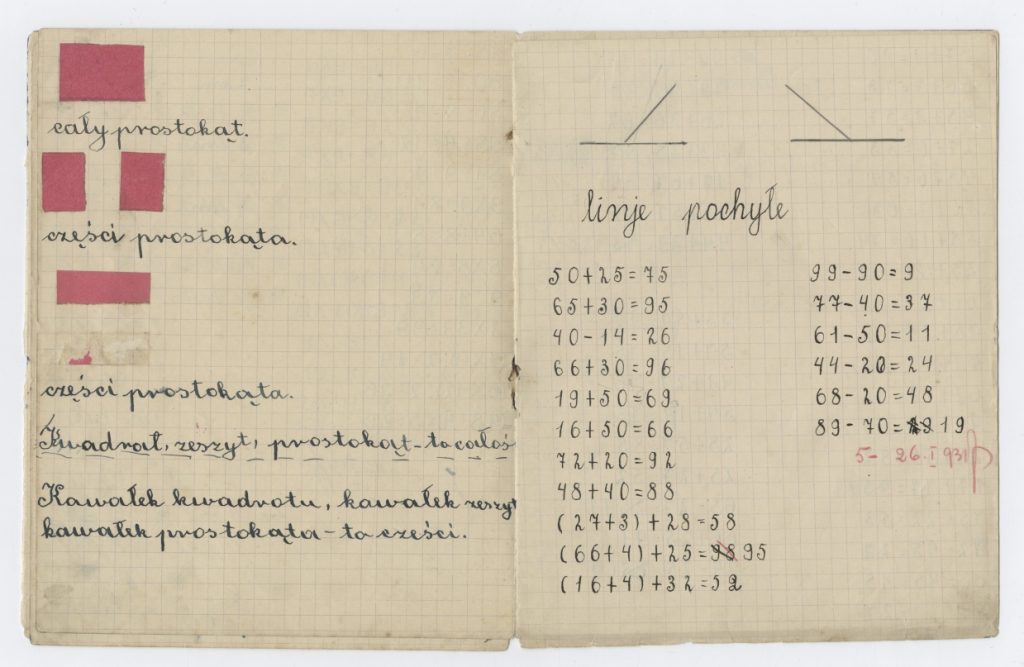 cały prostokąt.
części prostokąta.
części prostokąta.
Kwadrat, zeszyt, prostokąt – to całoś
Kawałek kwadrotu, kawałek zeszyt
kawałek prostokąta – to części.
linje pochyłe
50+25=75
65+30=95
40-14=26
66+30=96
19+50=69
16+50=66
72+20=92
48+40=88
(27+3)+28=58
(66+4)+25=98 95
(16+4)+32=52
99-90=9
77-40=37
61-50=11
44-20=24
68-20=48
89-70=19
5- 26.I 931